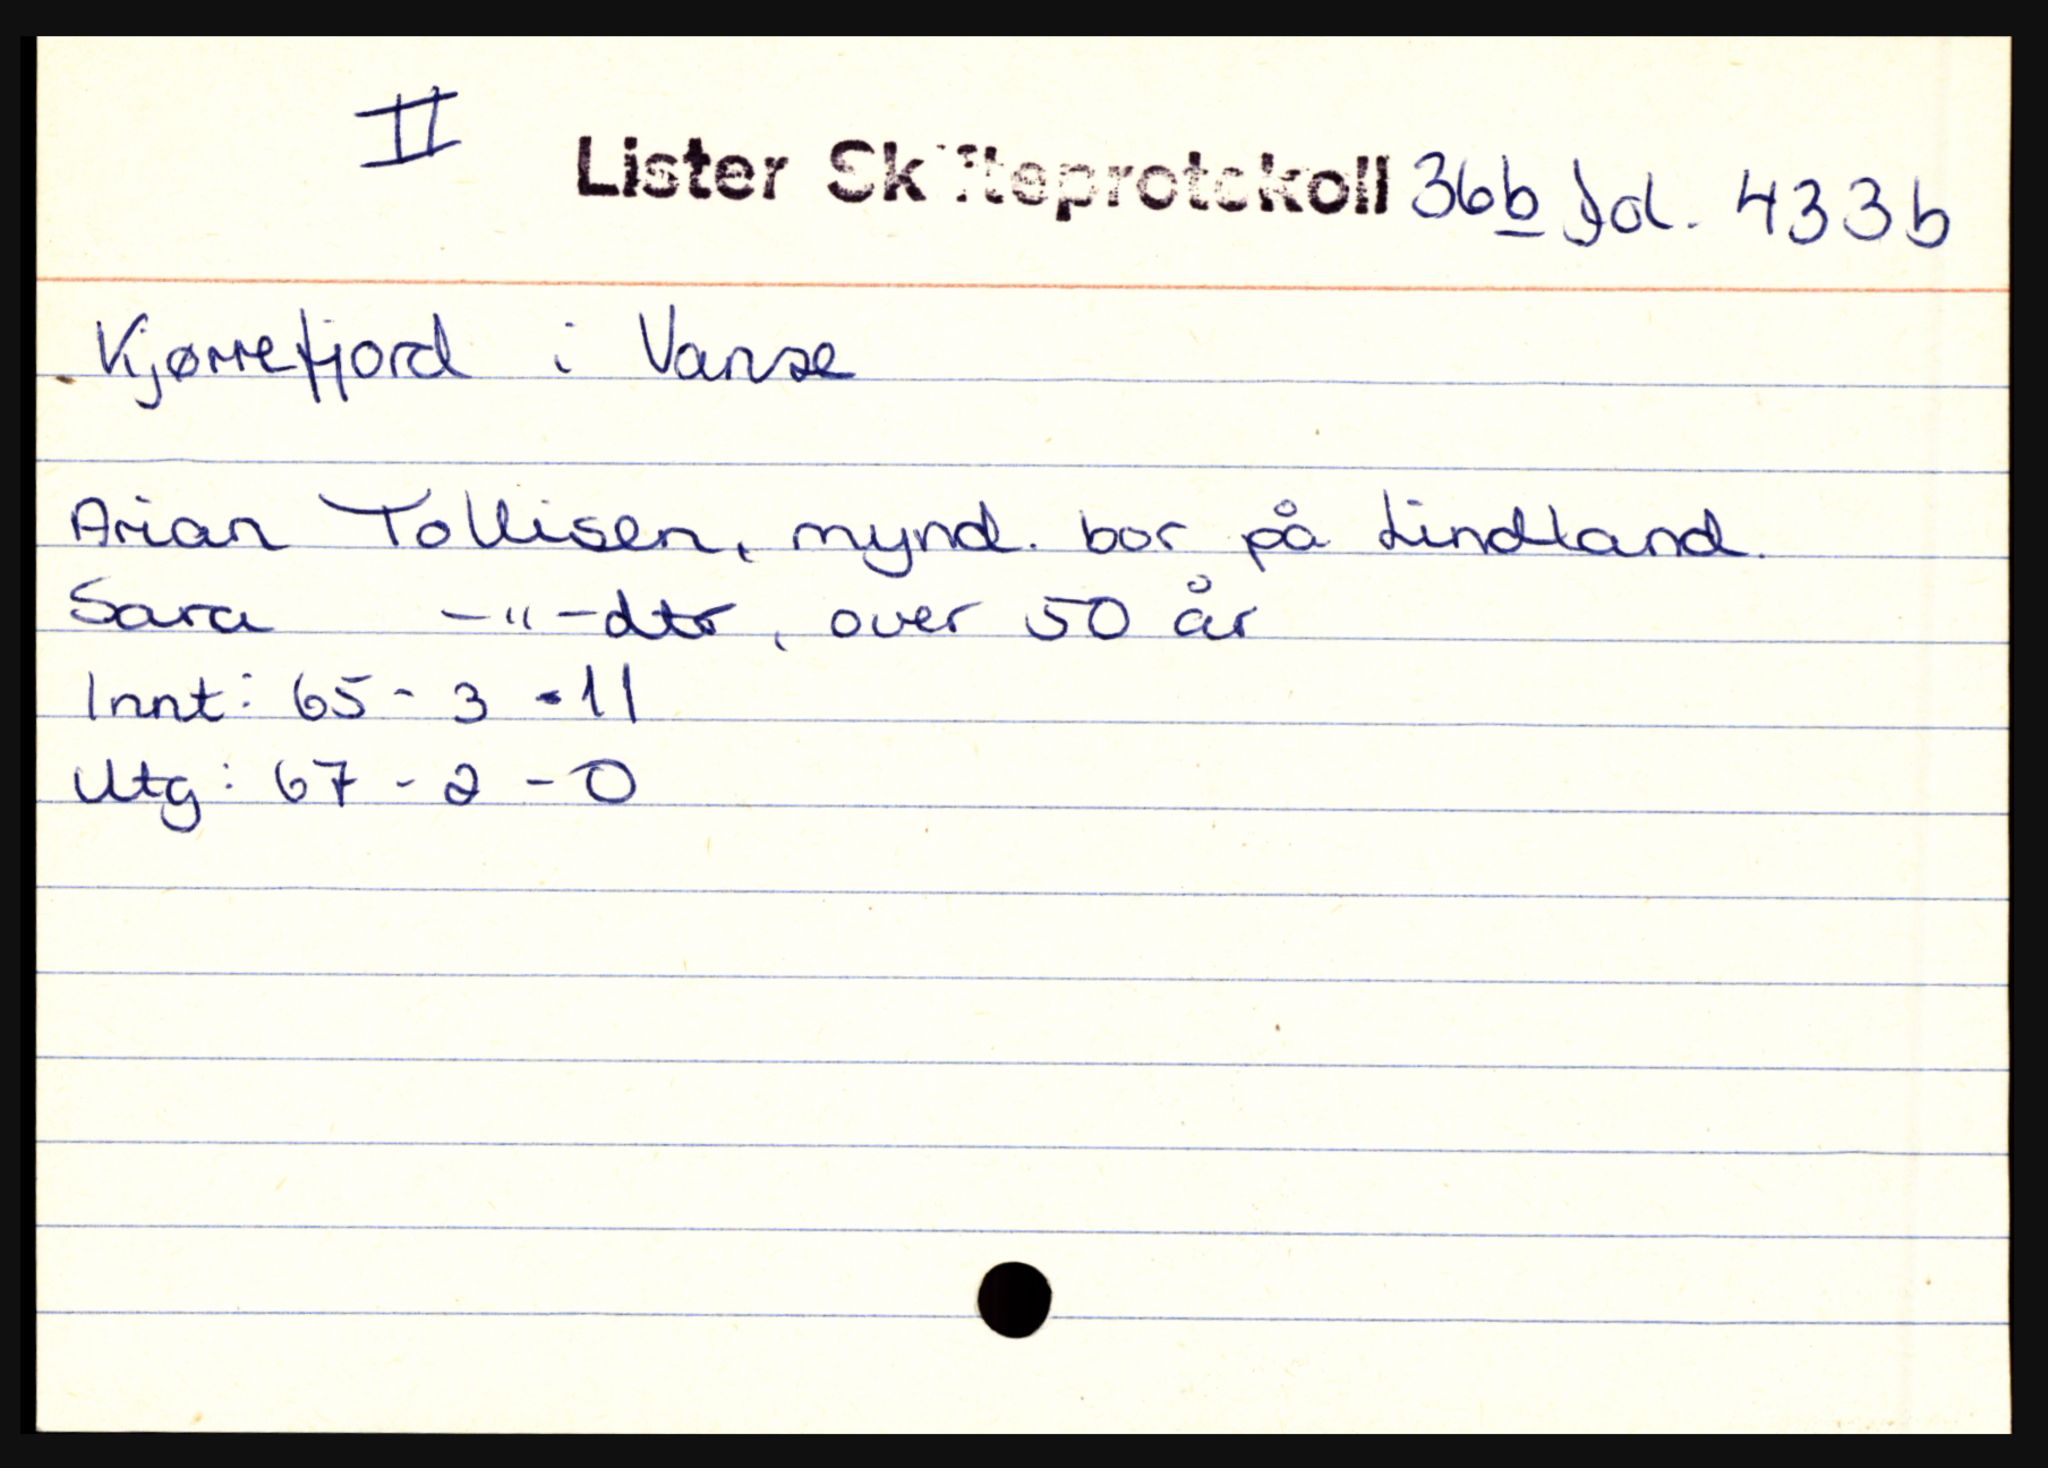 II
Lister Skifteprotokoll 36b fol. 433b
Kjørrefjord i Vanse
Arian Tollisen, mynd. bor på Lindland.
Sara -"-dtr, over 50 år
Innt: 65 - 3 - 11
Utg: 67 - 2 - 0